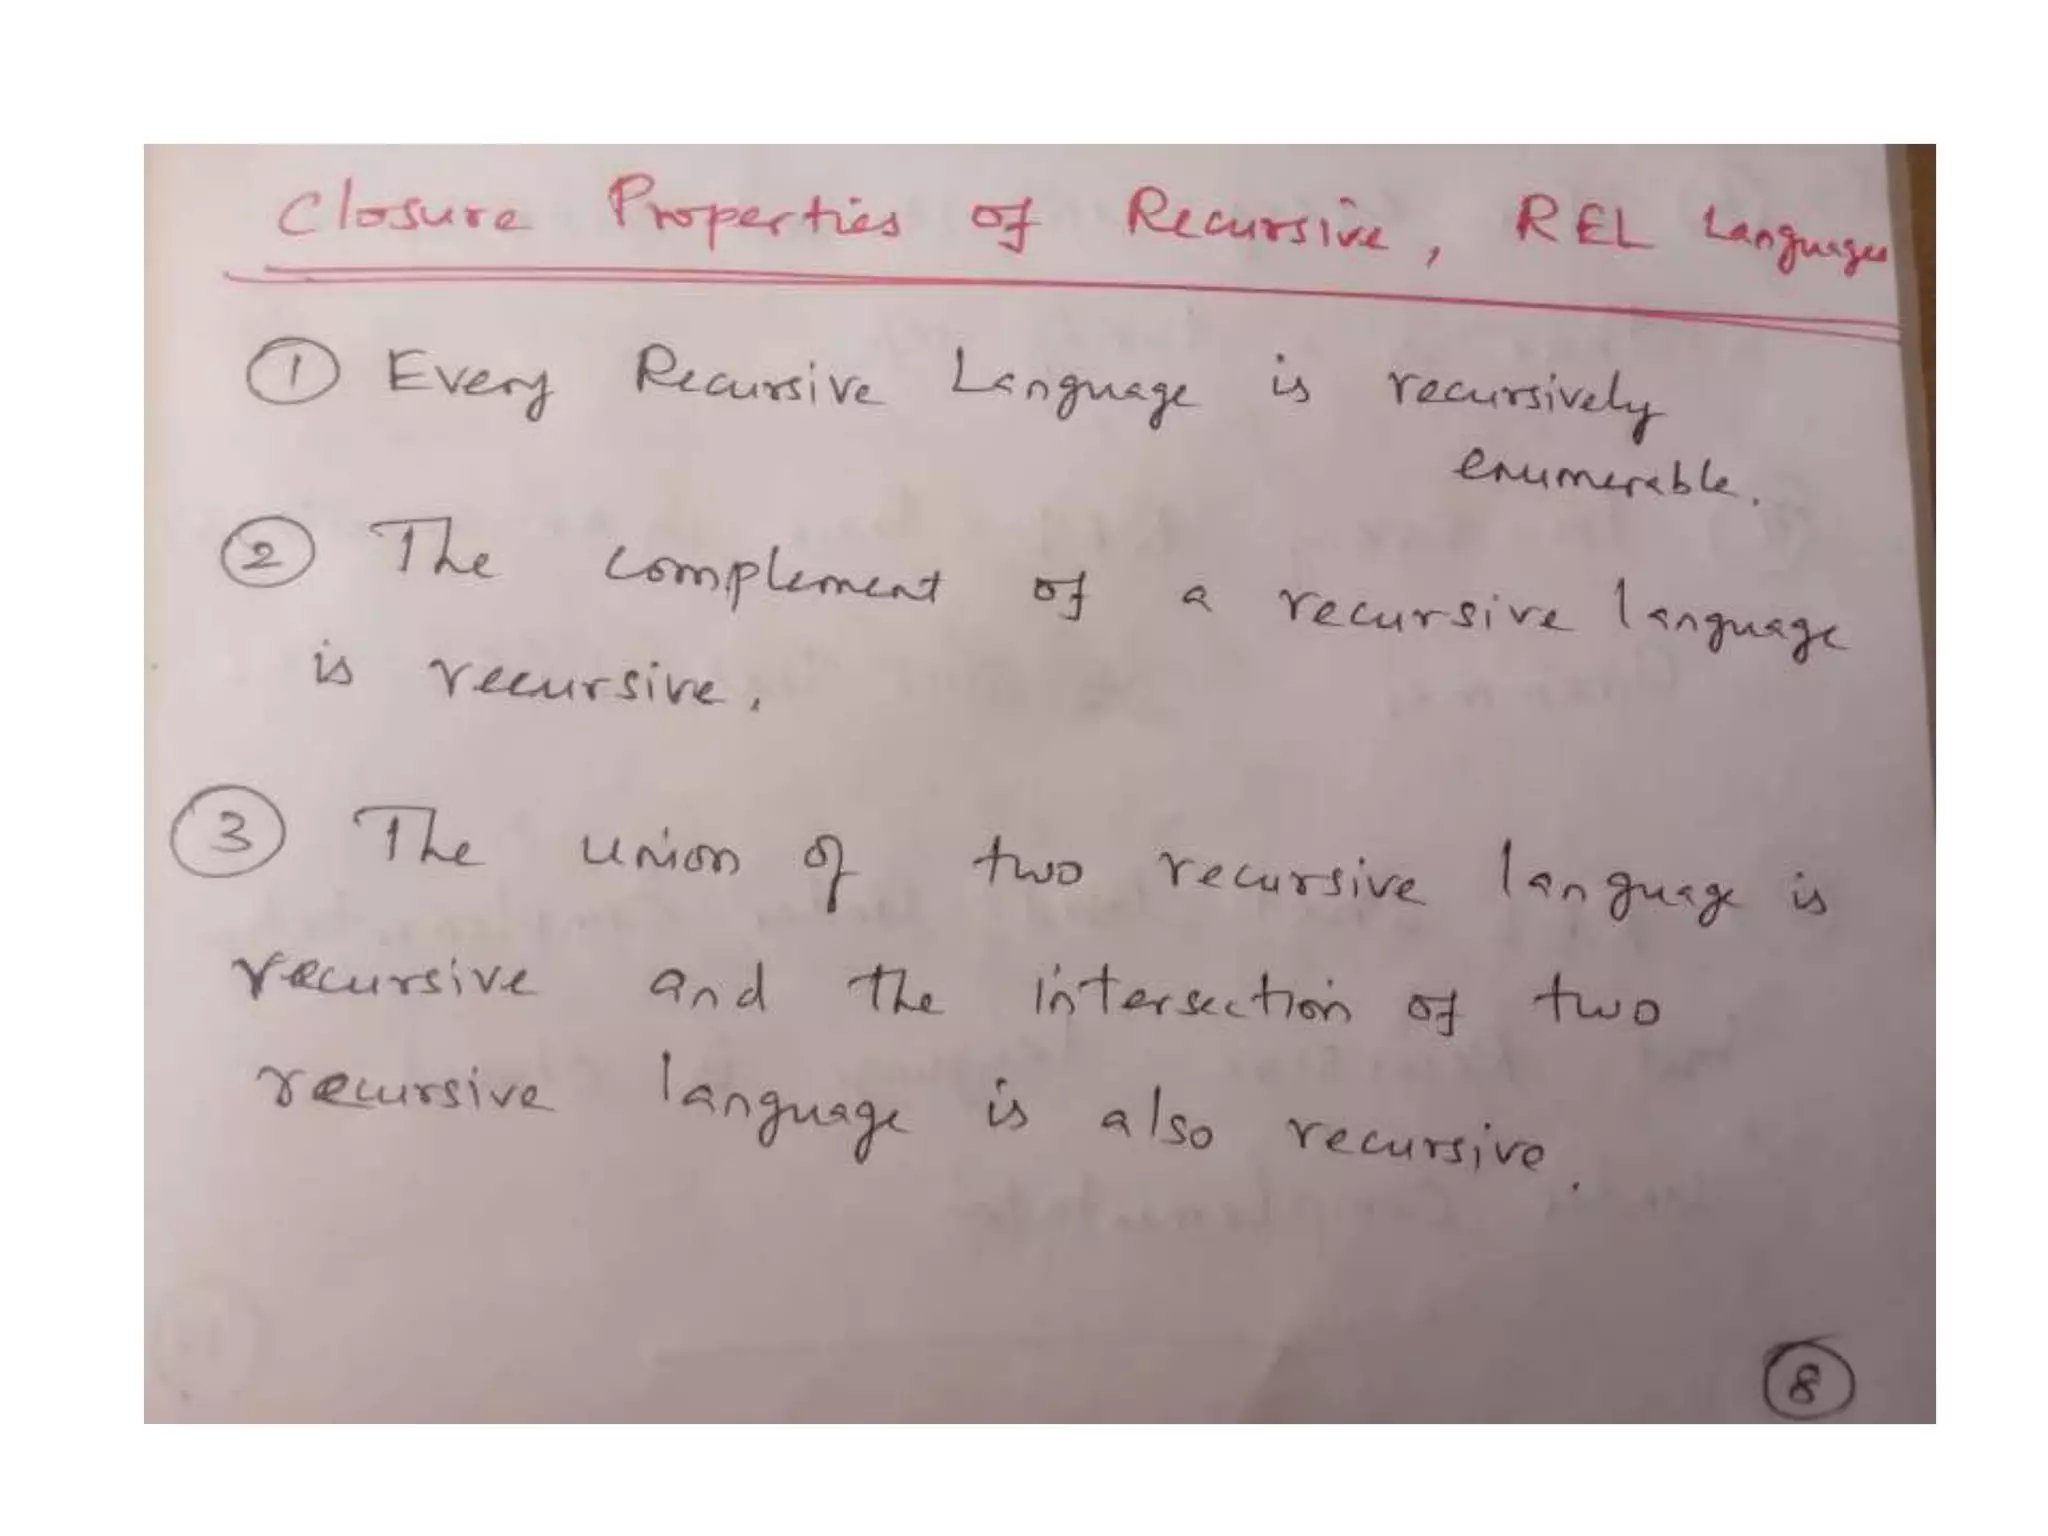 Closure Properties of Recursive, REL Languages
① Every Recursive Language is recursively
enumerable.
② The complement of a recursive language
is recursive.
③ The union of two recursive language is
recursive and the intersection of two
recursive language is also recursive.
⑧